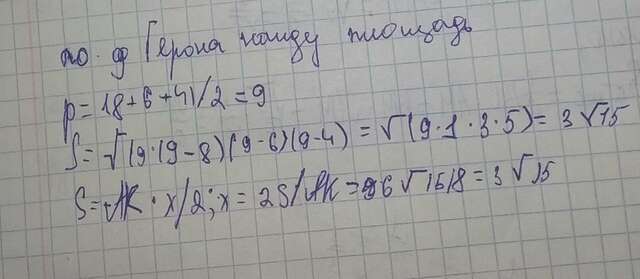 по ф Герона найду площадь
p=(8+6+4)/2=9
S=√(9·(9-8)(9-6)(9-4)=√(9·1·3·5)=3√15
S=AK·x/2; x=2S/AK=6√15/8=3√15